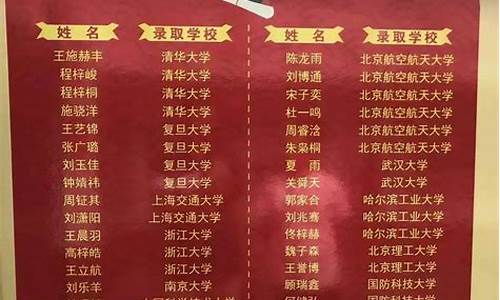 姓名 录取学校
王施赫丰 清华大学
程梓峻 清华大学
程梓桐 清华大学
施骁洋 清华大学
王艺锦 复旦大学
张广璐 复旦大学
刘玉佳 复旦大学
钟婧祎 复旦大学
周钲其 上海交通大学
刘潇阳 上海交通大学
王晨羽 浙江大学
高梓皓 浙江大学
王立航 浙江大学
刘乐羊 南京大学
姓名 录取学校
陈龙雨 北京航空航天大学
刘博通 北京航空航天大学
宋子奕 北京航空航天大学
杜一鸣 北京航空航天大学
周睿淦 北京航空航天大学
朱枭桐 北京航空航天大学
夏雨 武汉大学
关舜天 武汉大学
郭家合 哈尔滨工业大学
刘兆骞 哈尔滨工业大学
佟梓赫 哈尔滨工业大学
魏子森 北京理工大学
王誉博 北京理工大学
顾瑞鑫 国防科技大学
国防科技大学